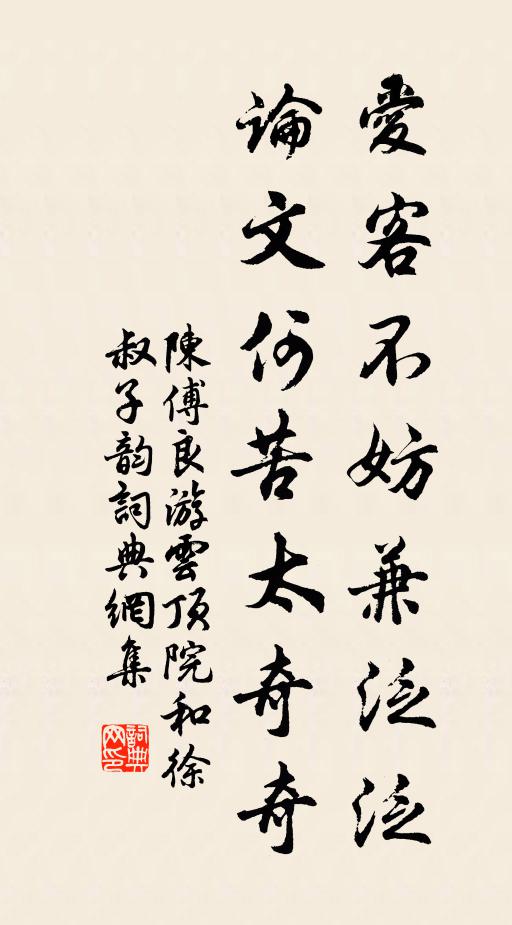 愛客不妨兼泛泛
論文何苦太奇奇
陳傅良游雲頂院和徐
叔子韵詞典網集
詞典網印